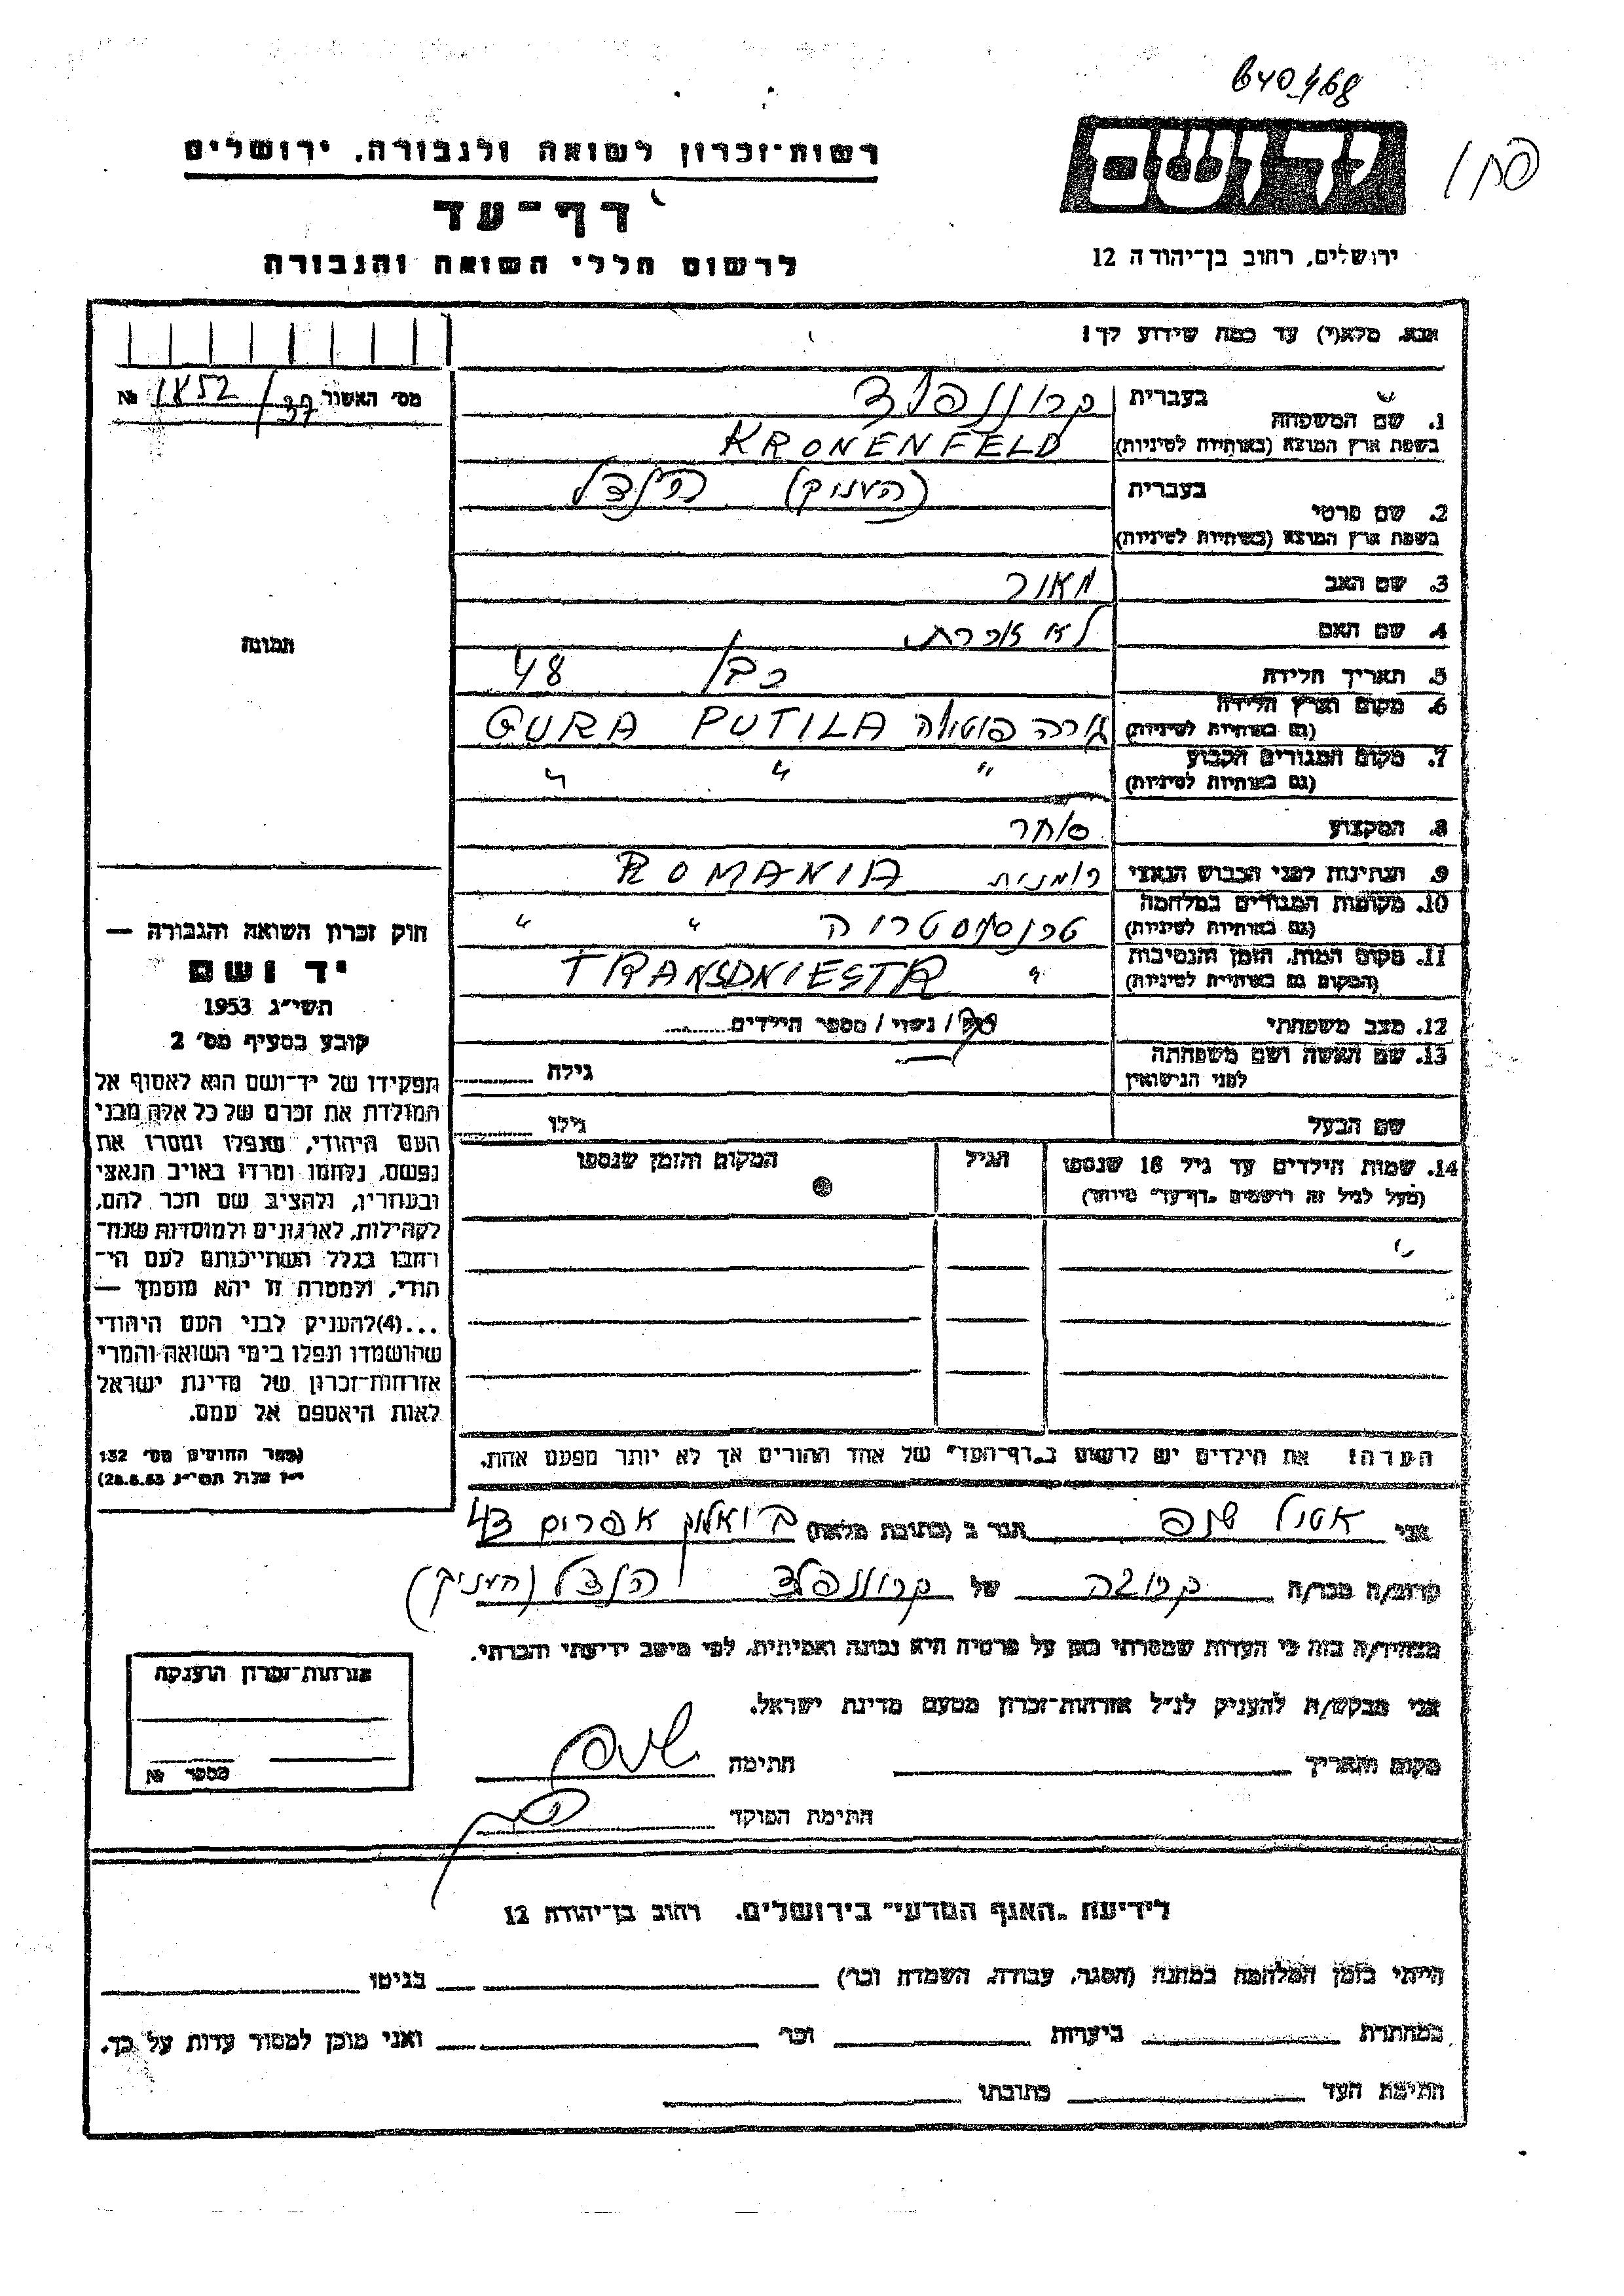 640/168
רשות־זכרון לשואה ולגבורה, ירושלים
דף־עד
לרשום חללי השואה והגבורה
יד ושם
ירושלים, רחוב בן־יהודה 12
אנא, מלא(י) עד כמה שידוע לך!
מס' האשור 1852/37 №
1. שם המשפחה
בעברית קרוננפלד
בשפת ארץ המוצא (באותיות לטיניות) KRONENFELD
2. שם פרטי
בעברית (העניק) הנדל
בשפת ארץ המוצא (באותיות לטיניות)
3. שם האב מאור
4. שם האם לא זוכרת
5. תאריך הלידה כבן 48
6. מקום וארץ הלידה (גם באותיות לטיניות) גורה פוטילה GURA PUTILA
7. מקום המגורים הקבוע (גם באותיות לטיניות) " " "
8. המקצוע סוחר
9. הנתינות לפני הכבוש הנאצי רומנית ROMANIA
10. מקומות המגורים במלחמה (גם באותיות לטיניות) " "
11. מקום המות, הזמן והנסיבות (המקום גם באותיות לטיניות) " TRANSDNIESTR
12. מצב משפחתי רוק / נשוי / מספר הילדים
13. שם האשה ושם משפחתה לפני הנישואין גילה
שם הבעל גילו
14. שמות הילדים עד גיל 18 שנספו (מעל לגיל זה רושמים "דף־עד" מיוחד) הגיל המקום והזמן שנספו
הערה: את הילדים יש לרשום ב"דף־העד" של אחד ההורים אך לא יותר מפעם אחת.
תמונה
חוק זכרון השואה והגבורה —
יד ושם
תשי"ג 1953
קובע בסעיף מס' 2
תפקידו של יד־ושם הוא לאסוף אל
המולדת את זכרם של כל אלה מבני
העם היהודי, שנפלו ומסרו את
נפשם, נלחמו ומרדו באויב הנאצי
ובעוזריו, ולהציב שם וזכר להם,
לקהילות, לארגונים ולמוסדות שנח־
רחבו בגלל השתייכותם לעם הי־
הודי, ולמטרה זו יהא מוסמך —
...(4)להעניק לבני העם היהודי
שהושמדו ונפלו בימי השואה והמרי
אזרחות־זכרון של מדינת ישראל
לאות היאספם אל עמם.
(ספר החוקים מס' 132
י"ז אלול תשי"ג 28.8.53)
אני אטיל שנפ הגר ב (כתובת מלאה) אפרים 43
קרוב/ה מכר/ה קרובה של קרוננפלד הנדל (העניק)
מצהיר/ה בזה כי העדות שמסרתי כאן על פרטיה היא נכונה ואמיתית, לפי מיטב ידיעתי והכרתי.
אני מבקש/ת להעניק לנ"ל אזרחות־זכרון מטעם מדינת ישראל.
מקום ותאריך חתימה
חתימת הפוקד
אזרחות־זכרון הוענקה
מספר №
לידיעת "האגף המדעי" בירושלים, רחוב בן־יהודה 12
הייתי בזמן המלחמה במחנה (הסגר, עבודה, השמדה וכו') בגיטו
במחתרת ביערות וכו' ואני מוכן למסור עדות על כך.
חתימת העד כתובתו